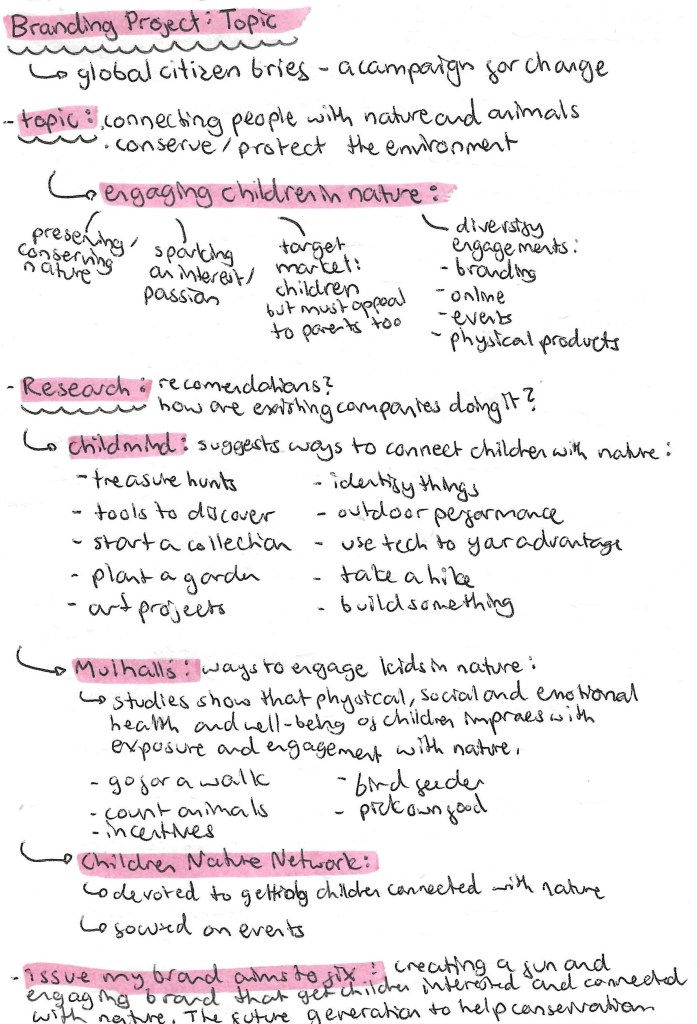 Branding Project: Topic
↳ global citizen bries - a campaign for change
- topic: · connecting people with nature and animals
· conserve / protect the environment
↳ engaging children in nature:
preserving / conserving nature
sparking an interest / passion
target market: children but must appeal to parents too
diversify engagements:
- branding
- online
- events
- physical products
- Research: recomendations?
how are existing companies doing it?
↳ childmind: suggests ways to connect children with nature:
- treasure hunts
- tools to discover
- start a collection
- plant a garden
- art projects
- identify things
- outdoor performance
- use tech to your advantage
- take a hike
- build something
↳ Mulhall's: ways to engage kids in nature:
↳ studies show that physical, social and emotional
health and well-being of children improves with
exposure and engagement with nature.
- go for a walk
- count animals
- incentives
- bird feeder
- pick own food
↳ Children Nature Network:
↳ devoted to getting children connected with nature
↳ focused on events
- issue my brand aims to fix: creating a fun and
engaging brand that get children interested and connected
with nature. The future generation to help conservation